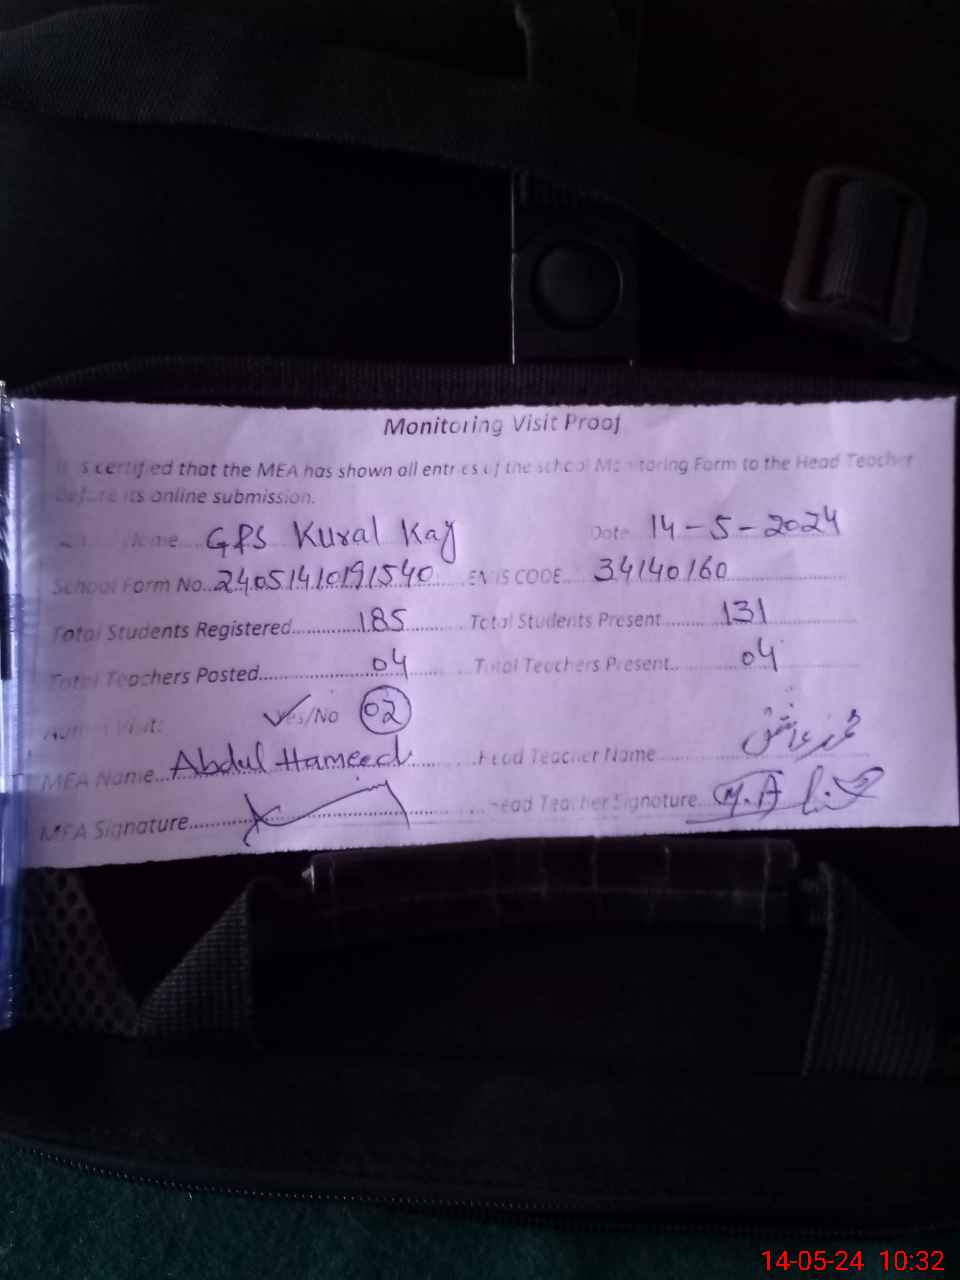 Monitoring Visit Proof
It is certified that the MEA has shown all entries of the school Monitoring Form to the Head Teacher
before its online submission.
Name GPS Kural Kay Date 14-5-2024
School Form No..24051410191540.... EMIS CODE.... 34140160
Total Students Registered..........185........ Total Students Present........131
Total Teachers Posted..........04........ Total Teachers Present..04
Visit: Yes/No 02
MEA Name...Abdul Hameed...... Head Teacher Name محمد عاشق
MEA Signature.......... Head Teacher Signature...M.A
14-05-24 10:32